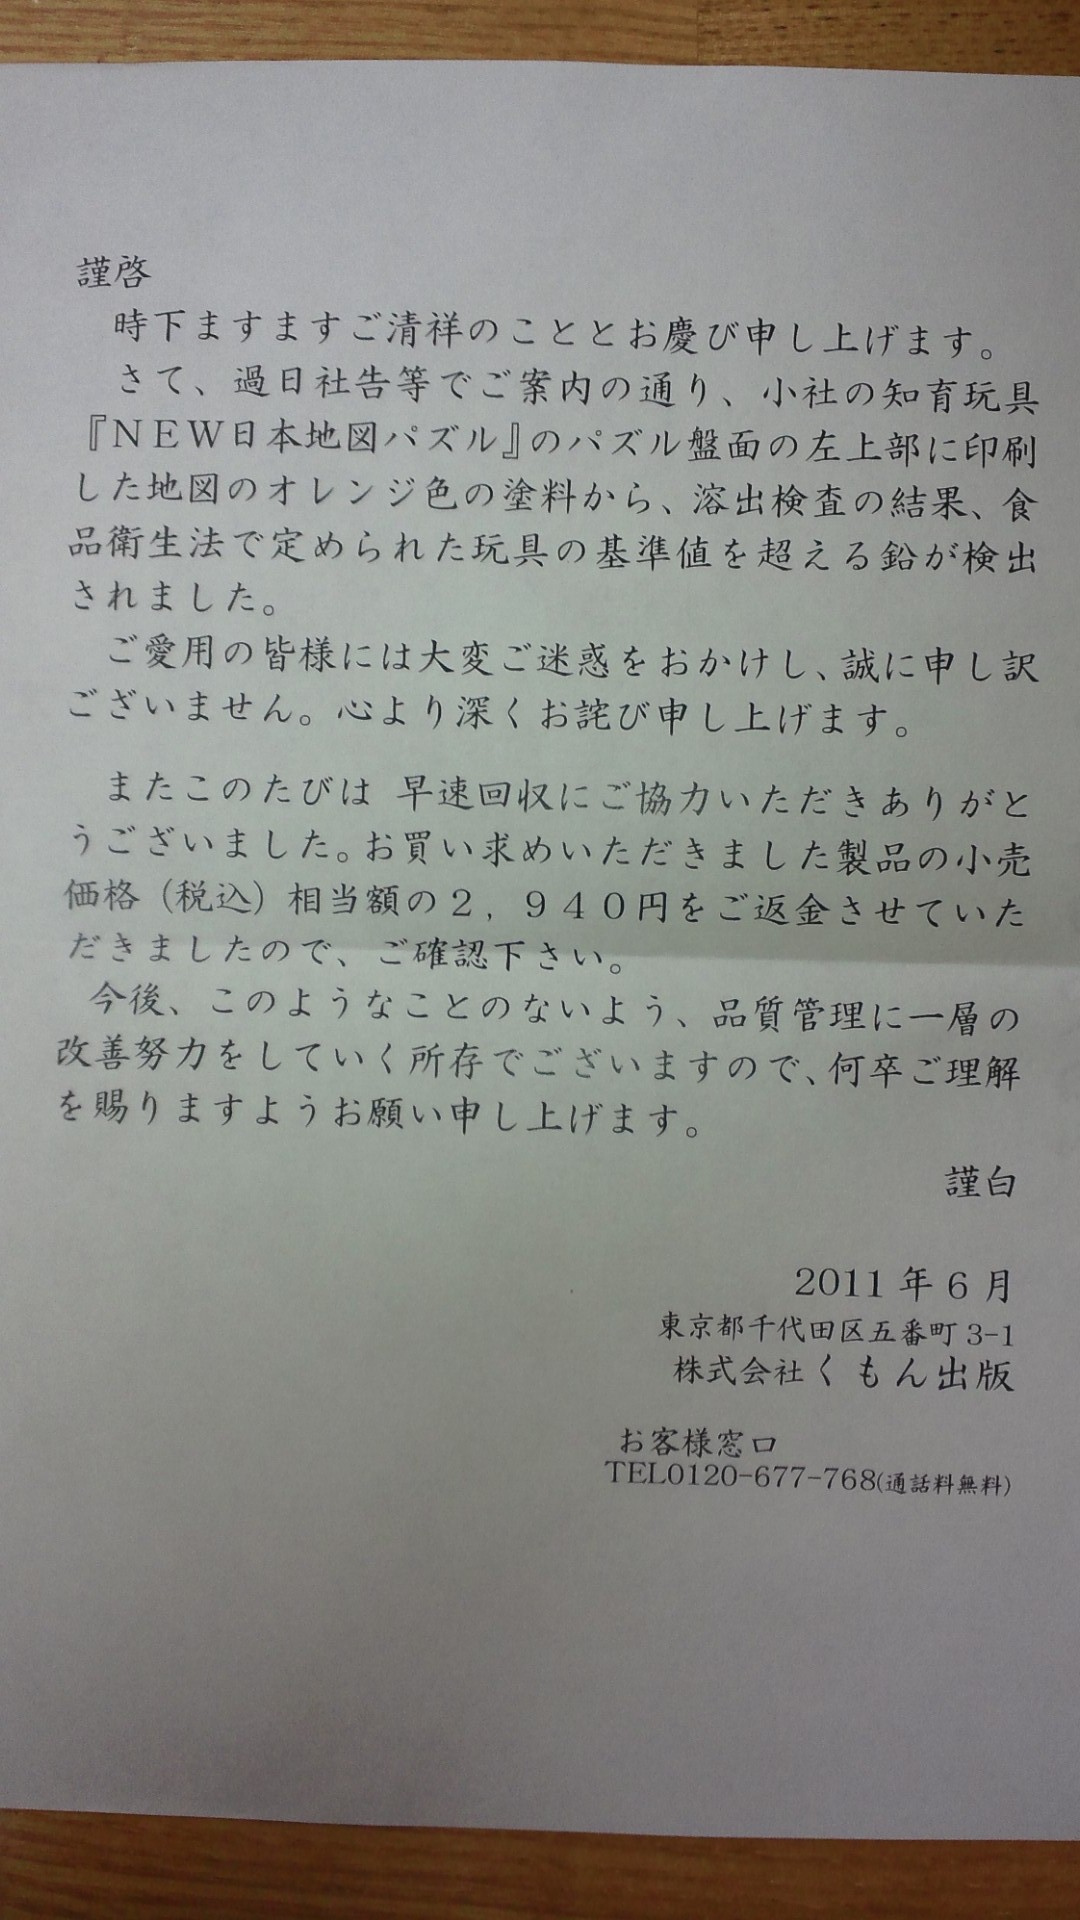 謹啓
時下ますますご清祥のこととお慶び申し上げます。
さて、過日社告等でご案内の通り、小社の知育玩具
『ＮＥＷ日本地図パズル』のパズル盤面の左上部に印刷
した地図のオレンジ色の塗料から、溶出検査の結果、食
品衛生法で定められた玩具の基準値を超える鉛が検出
されました。
ご愛用の皆様には大変ご迷惑をおかけし、誠に申し訳
ございません。心より深くお詫び申し上げます。
またこのたびは 早速回収にご協力いただきありがと
うございました。お買い求めいただきました製品の小売
価格（税込）相当額の２，９４０円をご返金させていた
だきましたので、ご確認下さい。
今後、このようなことのないよう、品質管理に一層の
改善努力をしていく所存でございますので、何卒ご理解
を賜りますようお願い申し上げます。
謹白
2011 年 6 月
東京都千代田区五番町 3-1
株式会社くもん出版
お客様窓口
TEL0120-677-768(通話料無料)